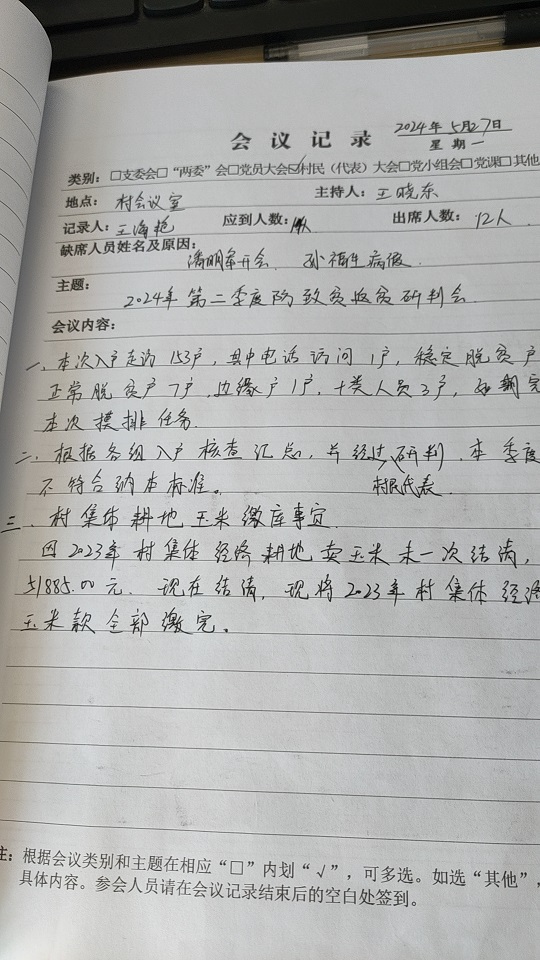 会议记录 2024年5月27日
星期一
类别：□支委会□“两委”会□党员大会☑村民（代表）大会□党小组会□党课□其他
地点：村会议室 主持人：王晓东
记录人：王海艳 应到人数： 出席人数：12人
缺席人员姓名及原因：
开会、孙福生病假.
主题：
2024年第二季度防致贫返贫研判会
会议内容：
一、本次入户走访153户，其中电话访问1户，稳定脱贫户
正常脱贫户7户，边缘户1户，十类人员3户，
本次摸排任务.
二、根据各组入户核查汇总，并经过研判、本季度
村民代表
不符合纳本标准。
三、村集体耕地玉米缴库事宜.
因2023年村集体经济耕地卖玉米未一次结清，
51885.00元. 现在结清，现将2023年村集体经济
玉米款全部缴完。
注：根据会议类别和主题在相应“□”内划“√”，可多选。如选“其他”，
具体内容。参会人员请在会议记录结束后的空白处签到。